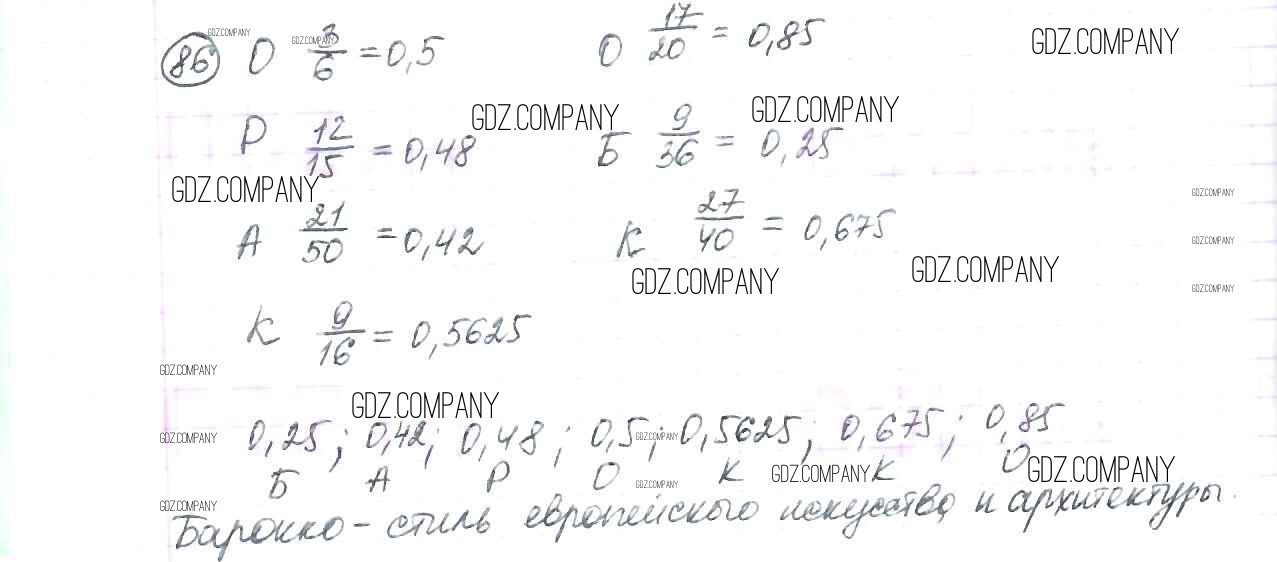 GDZ.COMPANY
86 О 3/6 = 0,5 О 17/20 = 0,85 GDZ.COMPANY
GDZ.COMPANY
GDZ.COMPANY GDZ.COMPANY
Р 12/15 = 0,48 Б 9/36 = 0,25
GDZ.COMPANY GDZ.COMPANY
А 21/50 = 0,42 К 27/40 = 0,675
GDZ.COMPANY
GDZ.COMPANY GDZ.COMPANY
GDZ.COMPANY
К 9/16 = 0,5625
GDZ.COMPANY
GDZ.COMPANY
GDZ.COMPANY 0,25; 0,42; 0,48; 0,5; GDZ.COMPANY 0,5625; 0,675; 0,85
Б А Р О К К О
GDZ.COMPANY GDZ.COMPANY GDZ.COMPANY
GDZ.COMPANY
Барокко - стиль европейского искусства и архитектуры.